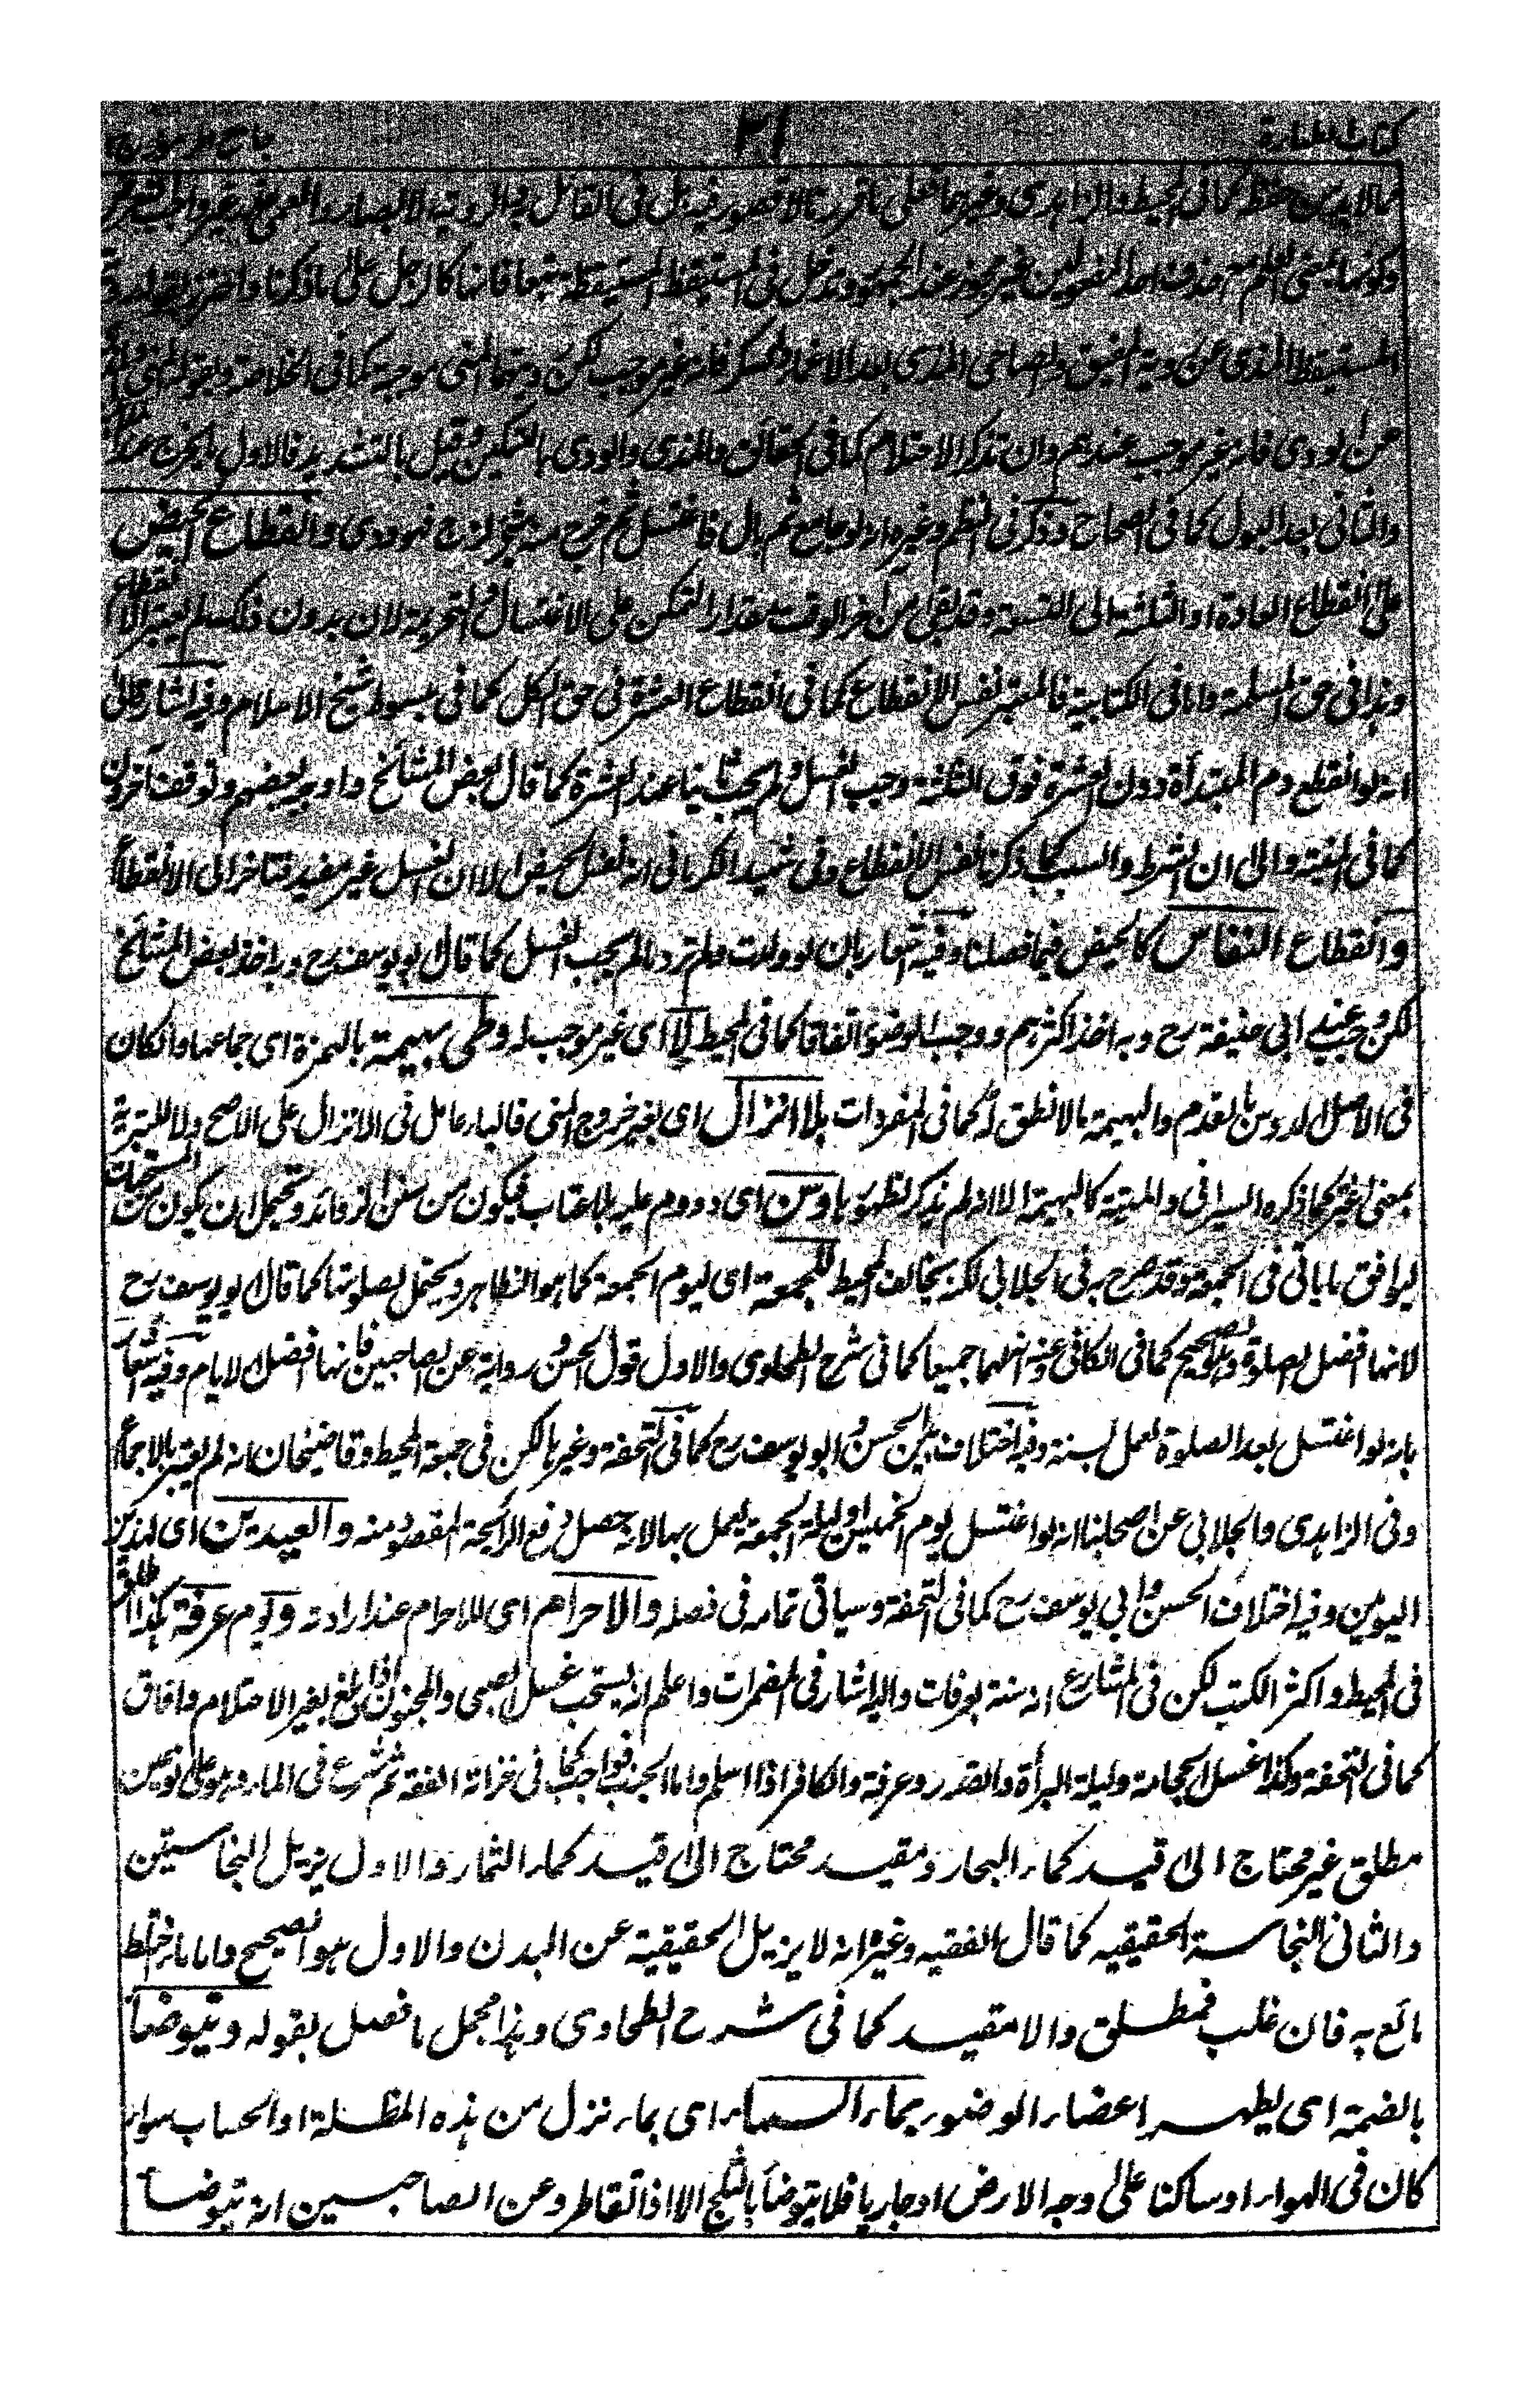 كتاب الطهارة ٢١ جامع الرموز ج
مالابد من حفظه كما فى المحيط والزاهدى وغيرهما فعلى ما قررنا لا قصور فيه
وكونها بمعنى العلم مع حذف احد المفعولين غير مجوز عند الجمهور وتدخل فى المستيقظ المستيقظة تبعا فانها كالرجل على ما ذكرنا واحترز بقوله
المستيقظ المذى عن روية المفيق والصاحى المذى بعد الاغماء والسكر فانه غير موجب لكن رويتهما المنى موجبة كما فى الخلاصة وبقوله المنى
عن الودى فانه غير موجب عندهم وان تذكر الاحتلام كما فى الحقائق والمذى والودى بالتسكين وقيل بالتشديد فالاول
والثانى بعد البول كما فى الصحاح وذكر فى النظم وغيره انه لو جامع ثم بال فاغتسل ثم خرج منه شئ لزج فهو ودى وانقطاع الحيض
على انقطاع العادة او الثلثة الى التسعة وقد بقى من آخر الوقت مقدار التمكن على الاغتسال والتحريمة لان بدون ذلك لم يعتبر الانقطاع
وهذا فى حق المسلمة واما فى الكتابية فالمعتبر نفس الانقطاع كما فى انقطاع العشرة فى حق الكل كما فى مبسوط شيخ الاسلام وفيه اشارة الى
انه لو انقطع دم المبتدأة دون العشرة فوق الثلثة وجب الغسل ولم يجب ثانيا عند العشرة كما قال بعض المشائخ واوجبه بعضهم وتوقف آخرون
كما فى المنية والى ان الشرط والسبب كما ذكرنا نفس الانقطاع وفى تمهيد الكرمانى انه نفس الحيض لا لان الغسل غير مفيد فتاخر الى الانقطاع
وانقطاع النفاس كالحيض فيما فصلنا وفيه اشعار بان لو ولدت ولم تر دما لم يجب الغسل كما قال ابو يوسف رح وبه اخذ بعض المشائخ
لكن وجب عند ابى حنيفة رح وبه اخذ اكثرهم ووجب الوضوء اتفاقا كما فى المحيط لا اى غير موجب له وطى بهيمة بالهمزة اى جماعها وان كان
فى الاصل الدوس بالقدم والبهيمة ما لا نطق له كما فى المفردات بلا انزال اى بغير خروج المنى فالباء عامل فى الانزال على الاصح ولا للتبرية
بمعنى غير كما ذكره السيرافى والميتة كالبهيمة الا انه لم يذكر لظهورها وسن اى دووم عليه بلا عقاب فيكون من سنن الزوائد ويحتمل ان يكون من المستحبات
ليوافق ما ياتى فى الجمعة وقد صرح به فى الجلابى لكنه يخالف المحيط للجمعة اى ليوم الجمعة كما هو الظاهر ويحتمل لصلوتها كما قال ابو يوسف رح
لانها افضل الصلوة وهو الصحيح كما فى الكافى وعنه انه لهما جميعا كما فى شرح الطحاوى والاول قول الحسن رواية عن الصاحبين فانها افضل الايام وفيه اشعار
بانه لو اغتسل بعد الصلوة لعمل لسنة وفيه اختلاف بين الحسن وابو يوسف رح كما فى التحفة وغيرها لكن فى جمعة المحيط وقاضيخان انه لم يعتبر بالاجماع
وفى الزاهدى والجلابى عن اصحابنا انه لو اغتسل يوم الخميس او ليلة الجمعة ليعمل بها لانه حصل رفع الرائحة المقصود منه والعيدين اى لهذين
اليومين وفيه اختلاف الحسن وابى يوسف رح كما فى التحفة وسياتى تمامه فى فصله والاحرام اى للاحرام عند ارادته ويوم عرفة هكذا
فى المحيط واكثر الكتب لكن فى المشارع انه سنة بعرفات واليه اشار فى المضمرات واعلم انه يستحب غسل الصبى والمجنون اذا بلغ بغير الاحتلام وافاق
كما فى التحفة وكذا غسل الحجامة وليلة البرأة والقدر وعرفة والكافر اذا اسلم واما الجنب فواجب كما فى خزانة الفقه ثم شرع فى الماء وهو على نوعين
مطلق غير محتاج الى قيد كماء البحار ومقيد محتاج الى قيد كماء الثمار والاول يزيل النجاستين
والثانى النجاسة الحقيقيه كما قال الفقيه وغيره انه لا يزيل الحقيقية عن البدن والاول هو الصحيح واما ما اختلط
مائع به فان غلب فمطلق والا مقيد كما فى شرح الطحاوى وهذا مجمل ما فصل بقوله ويتوضأ
بالضمة اى يطهر اعضاء الوضوء بماء السماء اى بماء نزل من هذه المظلة او السحاب سواء
كان فى الهواء او ساكنا على وجه الارض او جاريا فلا يتوضأ بالثلج الا اذا تقاطر وعن الصاحبين انه يتوضأ